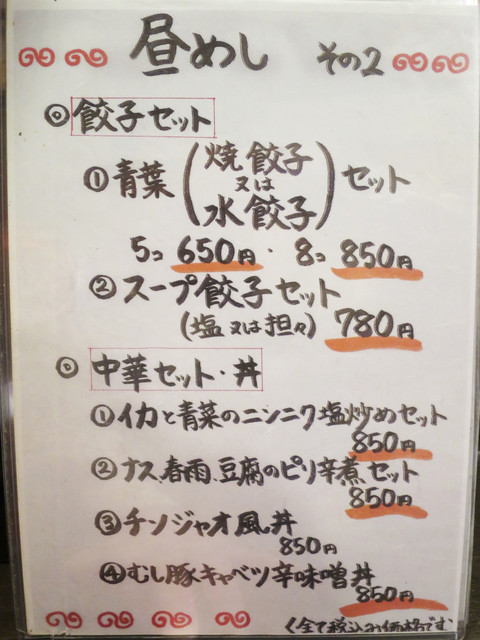 昼めし その2
◎ 餃子セット
① 青葉 (焼餃子 又は 水餃子) セット
5コ 650円・8コ 850円
② スープ餃子セット
(塩又は担々) 780円
◎ 中華セット・丼
① イカと青菜のニンニク塩炒めセット
850円
② ナス、春雨、豆腐のピリ辛煮セット
850円
③ チンジャオ風丼
850円
④ むし豚キャベツ辛味噌丼
850円
く全て税込み価格です